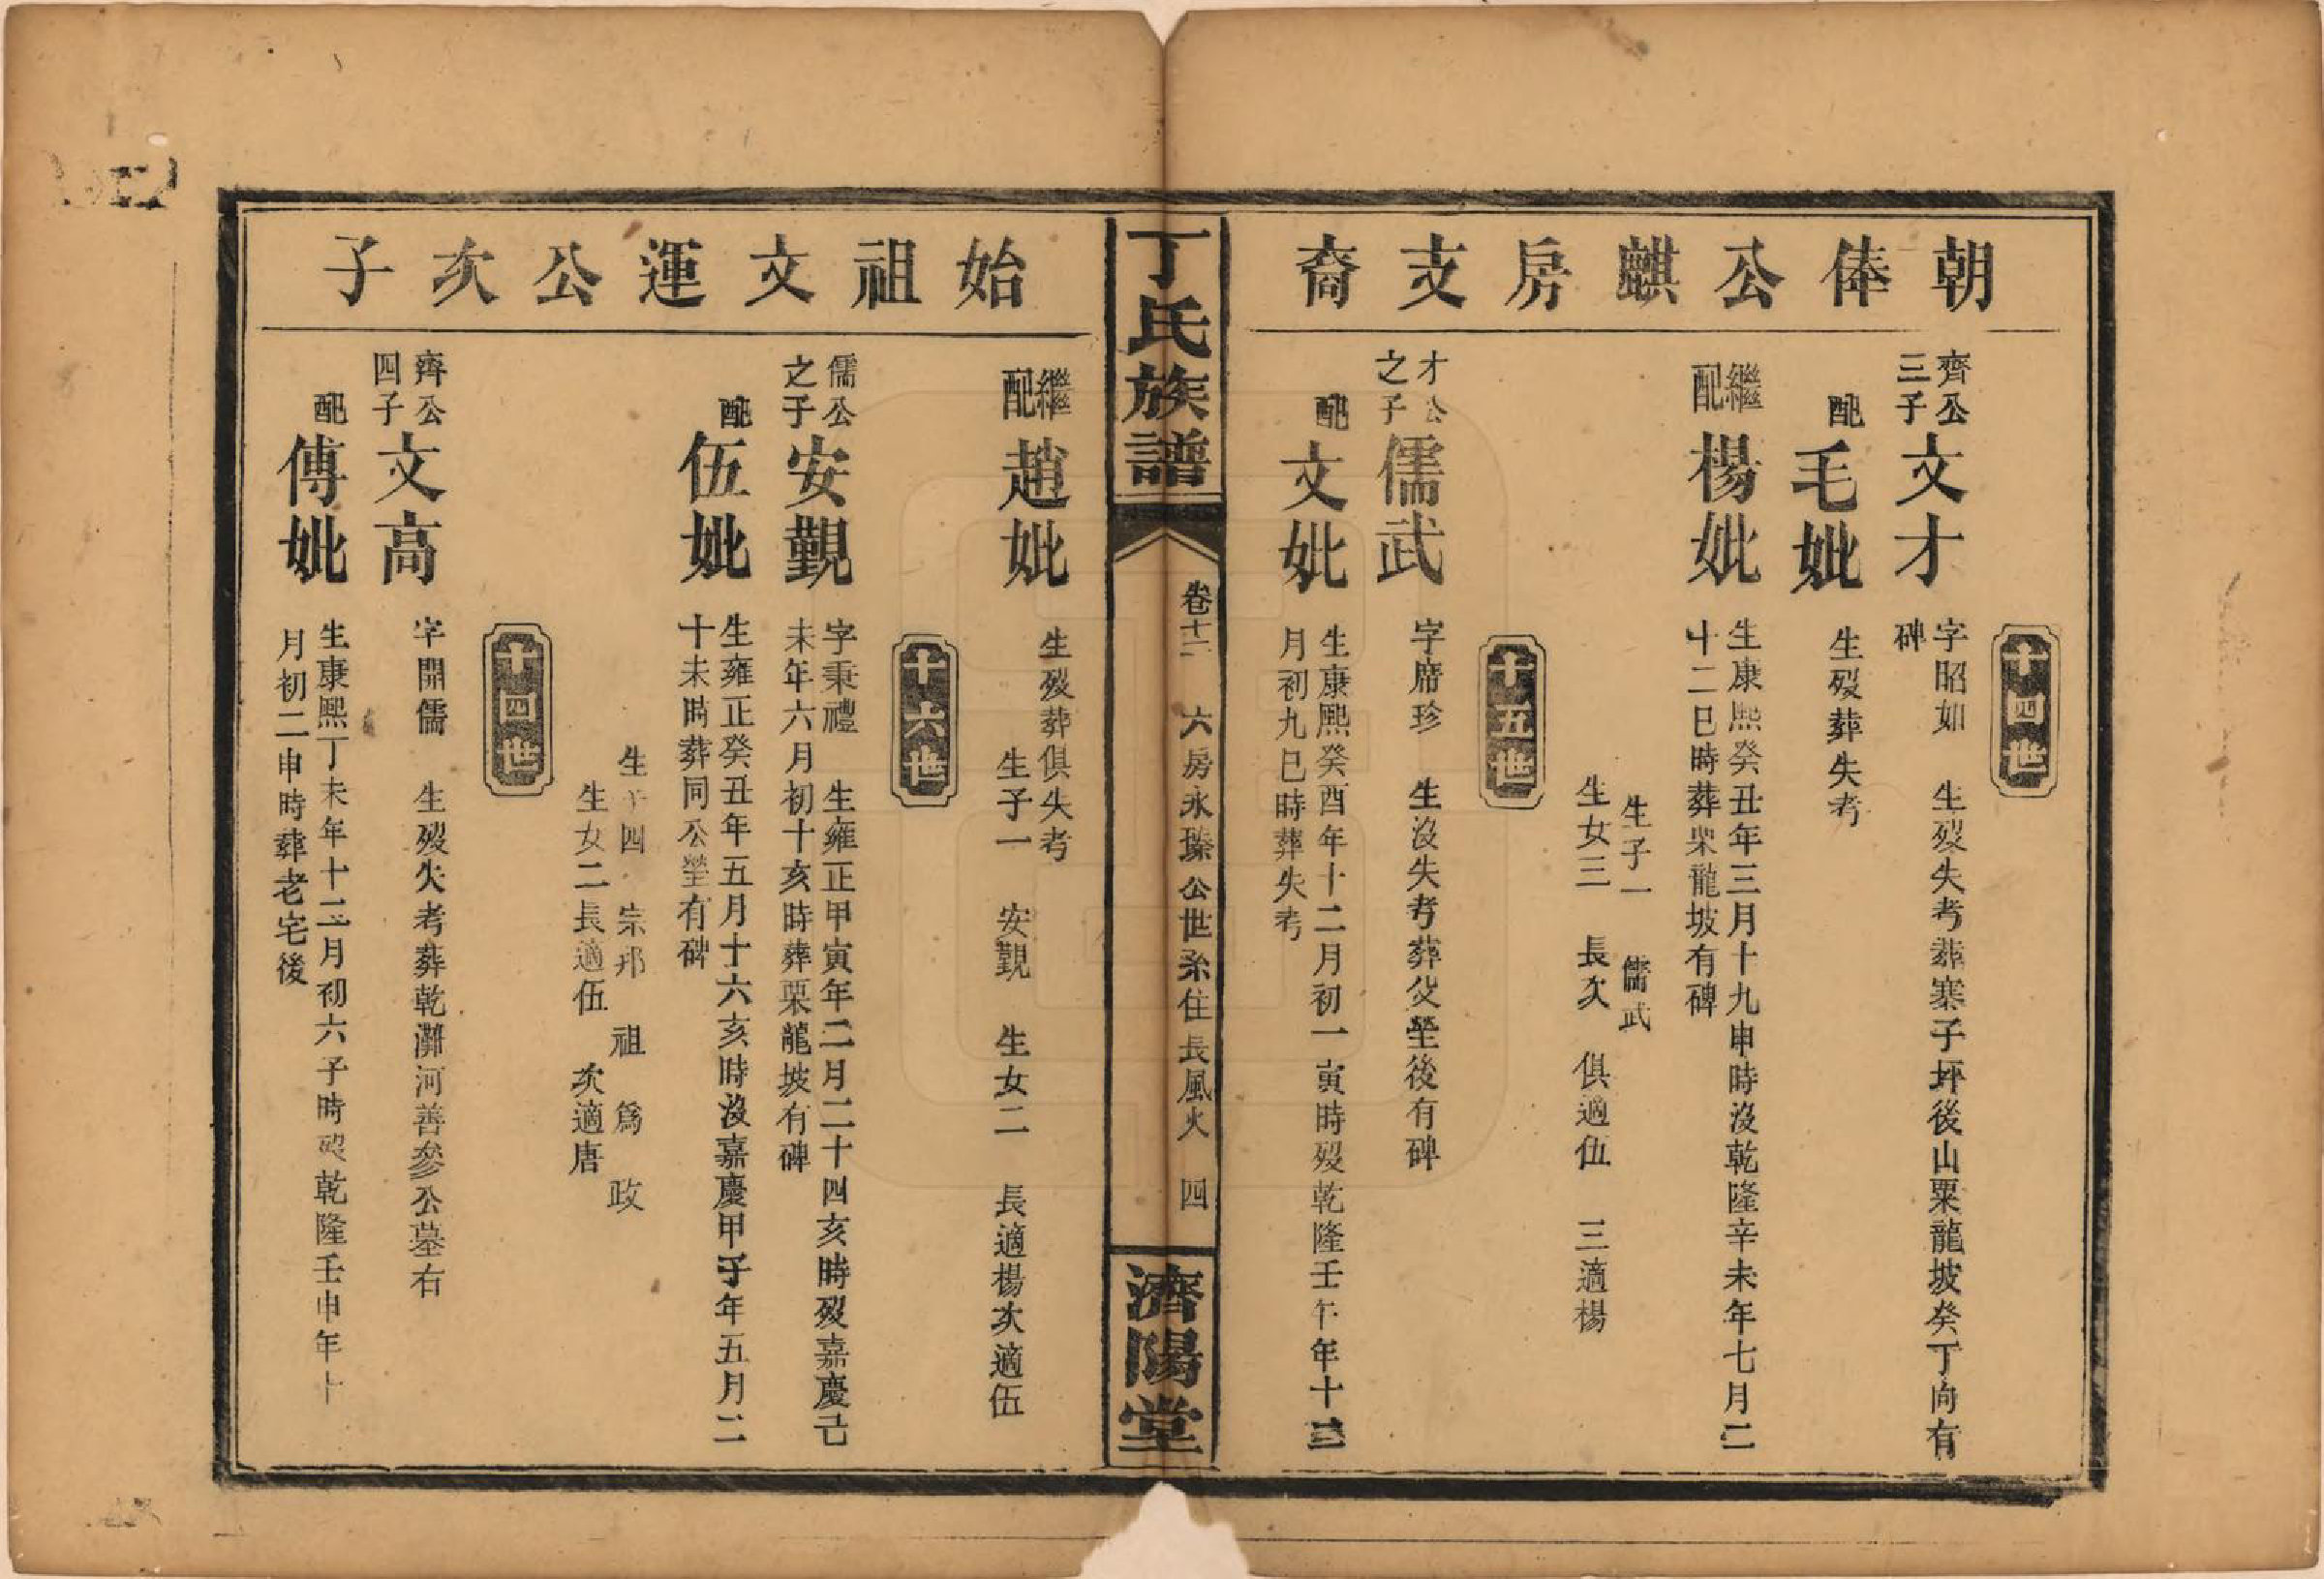 朝俸公麒房支裔
十四世
齊公三子
文才
字昭如 生歿失考葬寨子坪後山粟龍坡癸丁向有
碑
配
毛妣
生歿葬失考
繼配
楊妣
生康熙癸丑年三月十九申時沒乾隆辛未年七月二
十二巳時葬栗龍坡有碑
生子一 儒武
生女三 長次 俱適伍 三適楊
十五世
才公之子
儒武
字席珍 生沒失考葬父塋後有碑
配
文妣
生康熙癸酉年十二月初一寅時歿乾隆壬午年十三
月初九巳時葬失考
丁氏族譜
卷十二 六房永瑧公世系住長風火 四
濟陽堂
始祖文運公次子
繼配
趙妣
生歿葬俱失考
生子一 安觀 生女二 長適楊次適伍
十六世
儒公之子
安觀
字秉禮 生雍正甲寅年二月二十四亥時歿嘉慶己
未年六月初十亥時葬栗龍坡有碑
配
伍妣
生雍正癸丑年五月十六亥時沒嘉慶甲子年五月二
十未時葬同公塋有碑
生子四 宗邦 祖 祖 爲 政
生女二長適伍 次適唐
十四世
齊公四子
文高
字開儒 生歿失考葬乾灘河善參公墓右
配
傅妣
生康熙丁未年十二月初六子時歿乾隆壬申年十
月初二申時葬老宅後